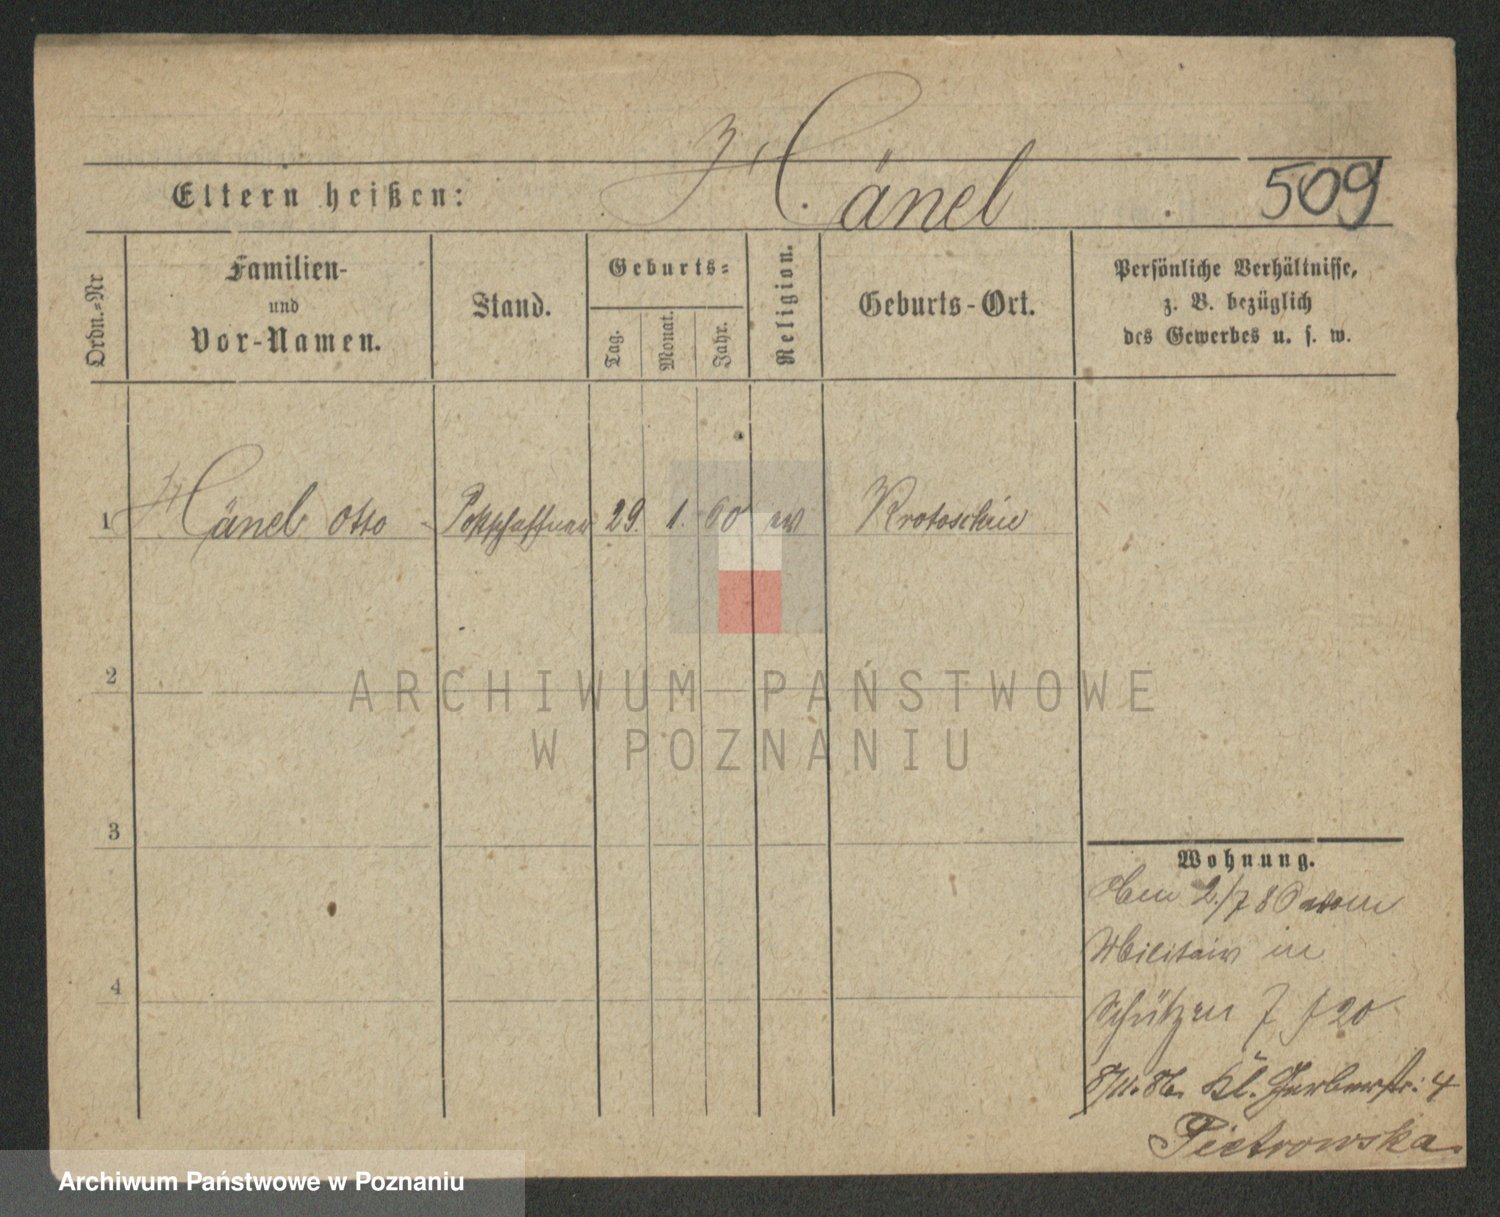 Hänel
Eltern heißen: 509
Ordn.=Nr
Familien-
und
Vor-Namen.
Stand.
Geburts=
Tag.
Monat.
Jahr.
Religion.
Geburts-Ort.
Persönliche Verhältnisse,
z. B. bezüglich
des Gewerbes u. s. w.
1 Hänel Otto Postschaffner 29. 1. 60 ev Krotoschin
2
3
4
Wohnung.
2./7 80
Militair in
Schützen 20
8/11. 86. Kl. Gerberstr: 4
Pietrowska.
ARCHIWUM PAŃSTWOWE
W POZNANIU
Archiwum Państwowe w Poznaniu